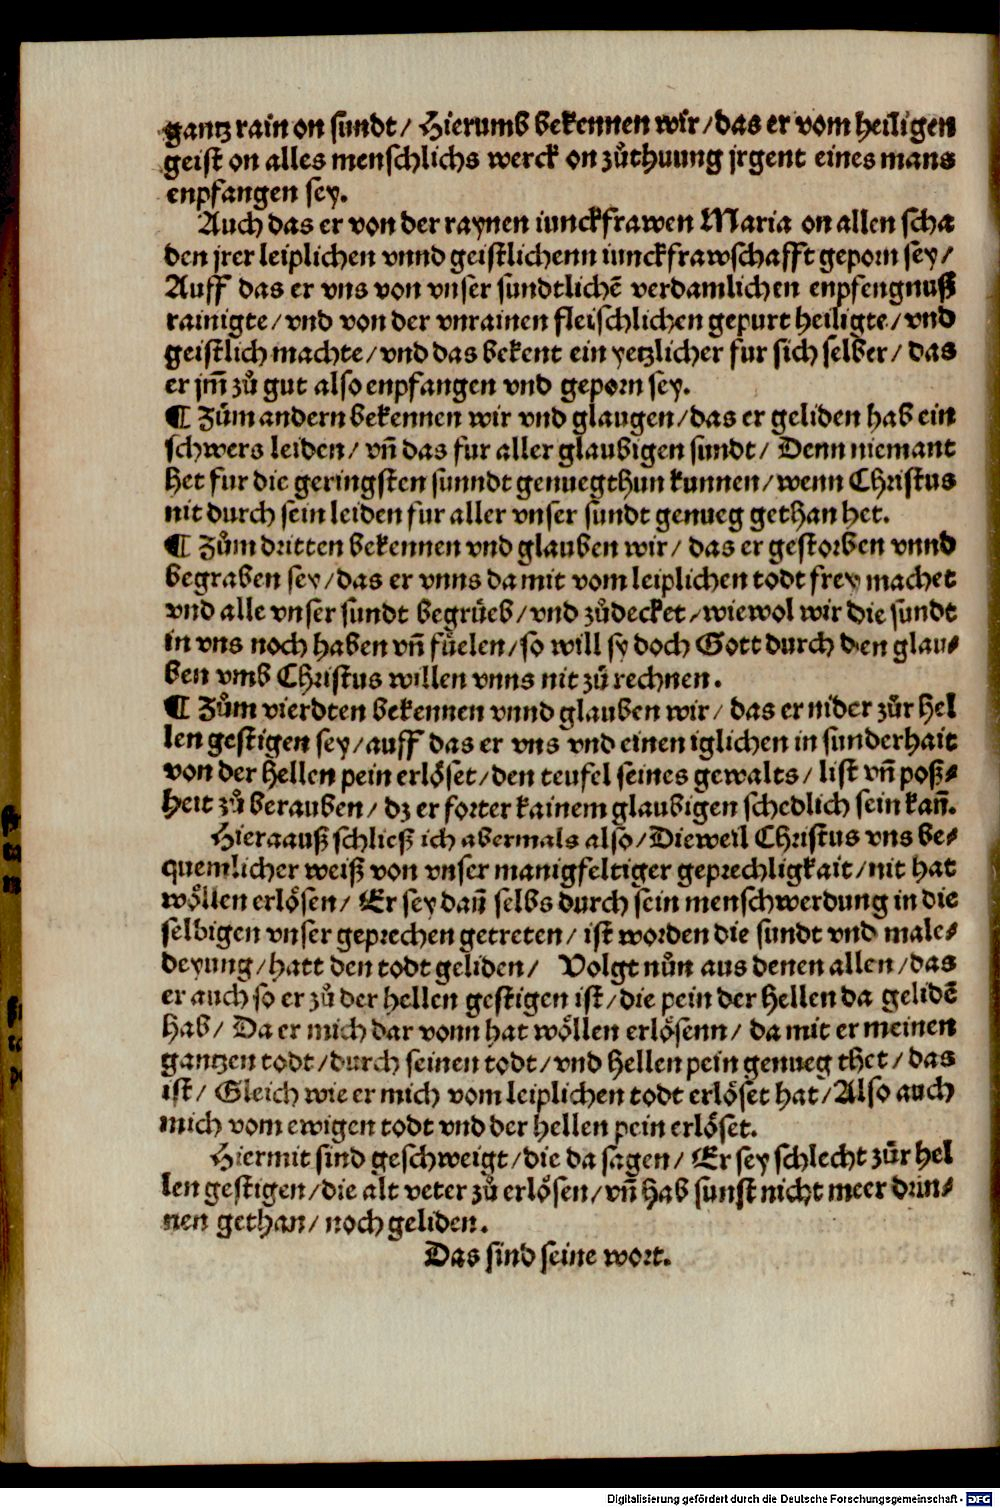 gantz rain on sundt/ Hierumb bekennen wir/das er vom heiligen
geist on alles menschlichs werck on zůthuung jrgent eines mans
enpfangen sey.
Auch das er von der raynen iunckfrawen Maria on allen scha
den jrer leiplichen vnnd geistlichenn iunckfrawschafft geporn sey/
Auff das er vns von vnser sundtlichē verdamlichen enpfengnuß
rainigte/vnd von der vnrainen fleischlichen gepurt heiligte/vnd
geistlich machte/vnd das bekent ein yetzlicher fur sich selber/ das
er jm̄ zů gut also enpfangen vnd geporn sey.
¶ Zům andern bekennen wir vnd glaugen/das er geliden hab ein
schwers leiden/ vn̄ das fur aller glaubigen sundt/ Denn niemant
het fur die geringsten sunndt genuegthun kunnen/wenn Christus
nit durch sein leiden fur aller vnser sundt genueg gethan het.
¶ Zům dritten bekennen vnd glauben wir/ das er gestorben vnnd
begraben sey/das er vnns da mit vom leiplichen todt frey machet
vnd alle vnser sundt begrüeb/vnd zůdecket/wiewol wir die sundt
in vns noch haben vn̄ füelen/so will sy doch Gott durch den glau⸗
ben vmb Christus willen vnns nit zů rechnen.
¶ Zům vierdten bekennen vnnd glauben wir/ das er nider zůr hel
len gestigen sey/auff das er vns vnd einen iglichen in sunderhait
von der hellen pein erlöset/den teufel seines gewalts/ list vn̄ poß⸗
heit zů berauben/ dz er forter kainem glaubigen schedlich sein kan̄.
Hieraauß schließ ich abermals also/Dieweil Christus vns be⸗
quemlicher weiß von vnser manigfeltiger geprechligkait/nit hat
wöllen erlösen/ Er sey dan̄ selbs durch sein menschwerdung in die
selbigen vnser geprechen getreten/ ist worden die sundt vnd male⸗
deyung/hatt den todt geliden/ Volgt nůn aus denen allen/das
er auch so er zů der hellen gestigen ist/die pein der hellen da gelidē
hab/ Da er mich dar vonn hat wöllen erlösenn/ da mit er meinen
gantzen todt/durch seinen todt/vnd hellen pein genueg thet/ das
ist/ Gleich wie er mich vom leiplichen todt erlöset hat/Also auch
mich vom ewigen todt vnd der hellen pein erlöset.
Hiermit sind geschweigt/die da sagen/ Er sey schlecht zůr hel
len gestigen/die alt veter zů erlösen/vn̄ hab sunst nicht meer drin⸗
nen gethan/noch geliden.
Das sind seine wort.
Digitalisierung gefördert durch die Deutsche Forschungsgemeinschaft - DFG